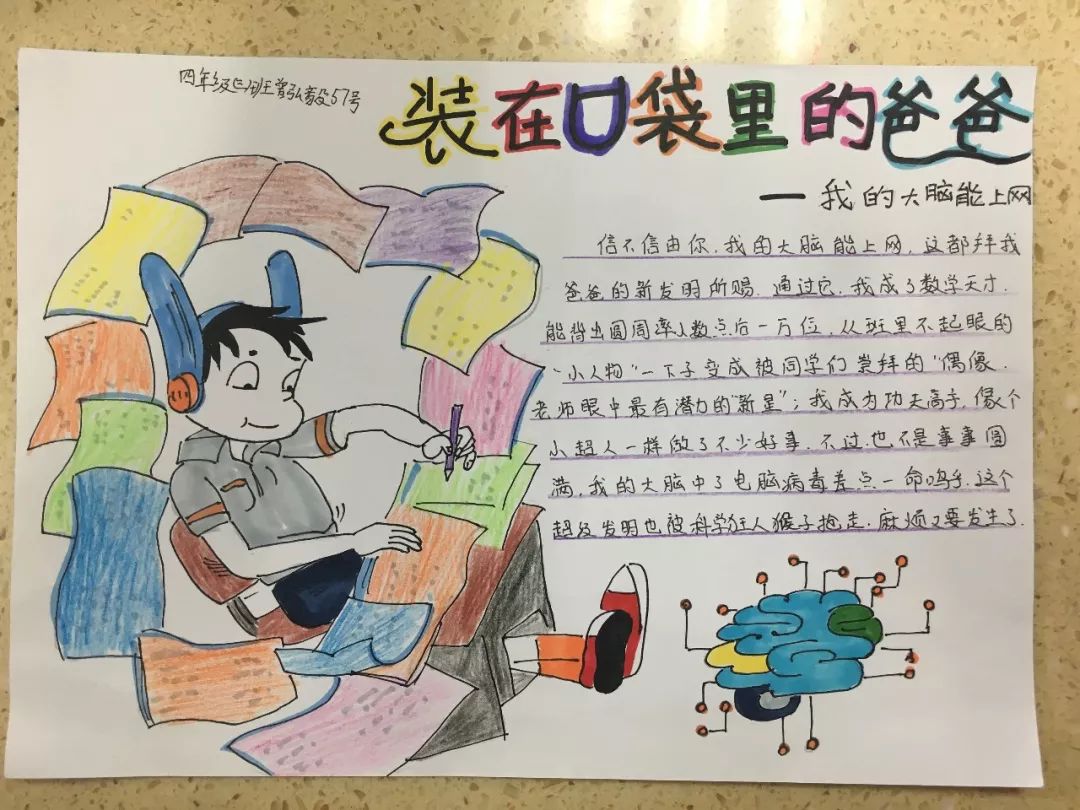 四年级四班曾弘毅57号
装在口袋里的爸爸
—我的大脑能上网
信不信由你,我的大脑能上网,这都拜我
爸爸的新发明所赐.通过它,我成了数学天才.
能背出圆周率小数点后一万位,从班里不起眼的
"小人物"一下子变成被同学们崇拜的"偶像.
老师眼中最有潜力的"新星";我成为功夫高手,像个
小超人一样做了不少好事.不过也不是事事圆
满,我的大脑中了电脑病毒差点一命呜乎.这个
超级发明也被科学狂人猴子抢走.麻烦又要发生了.